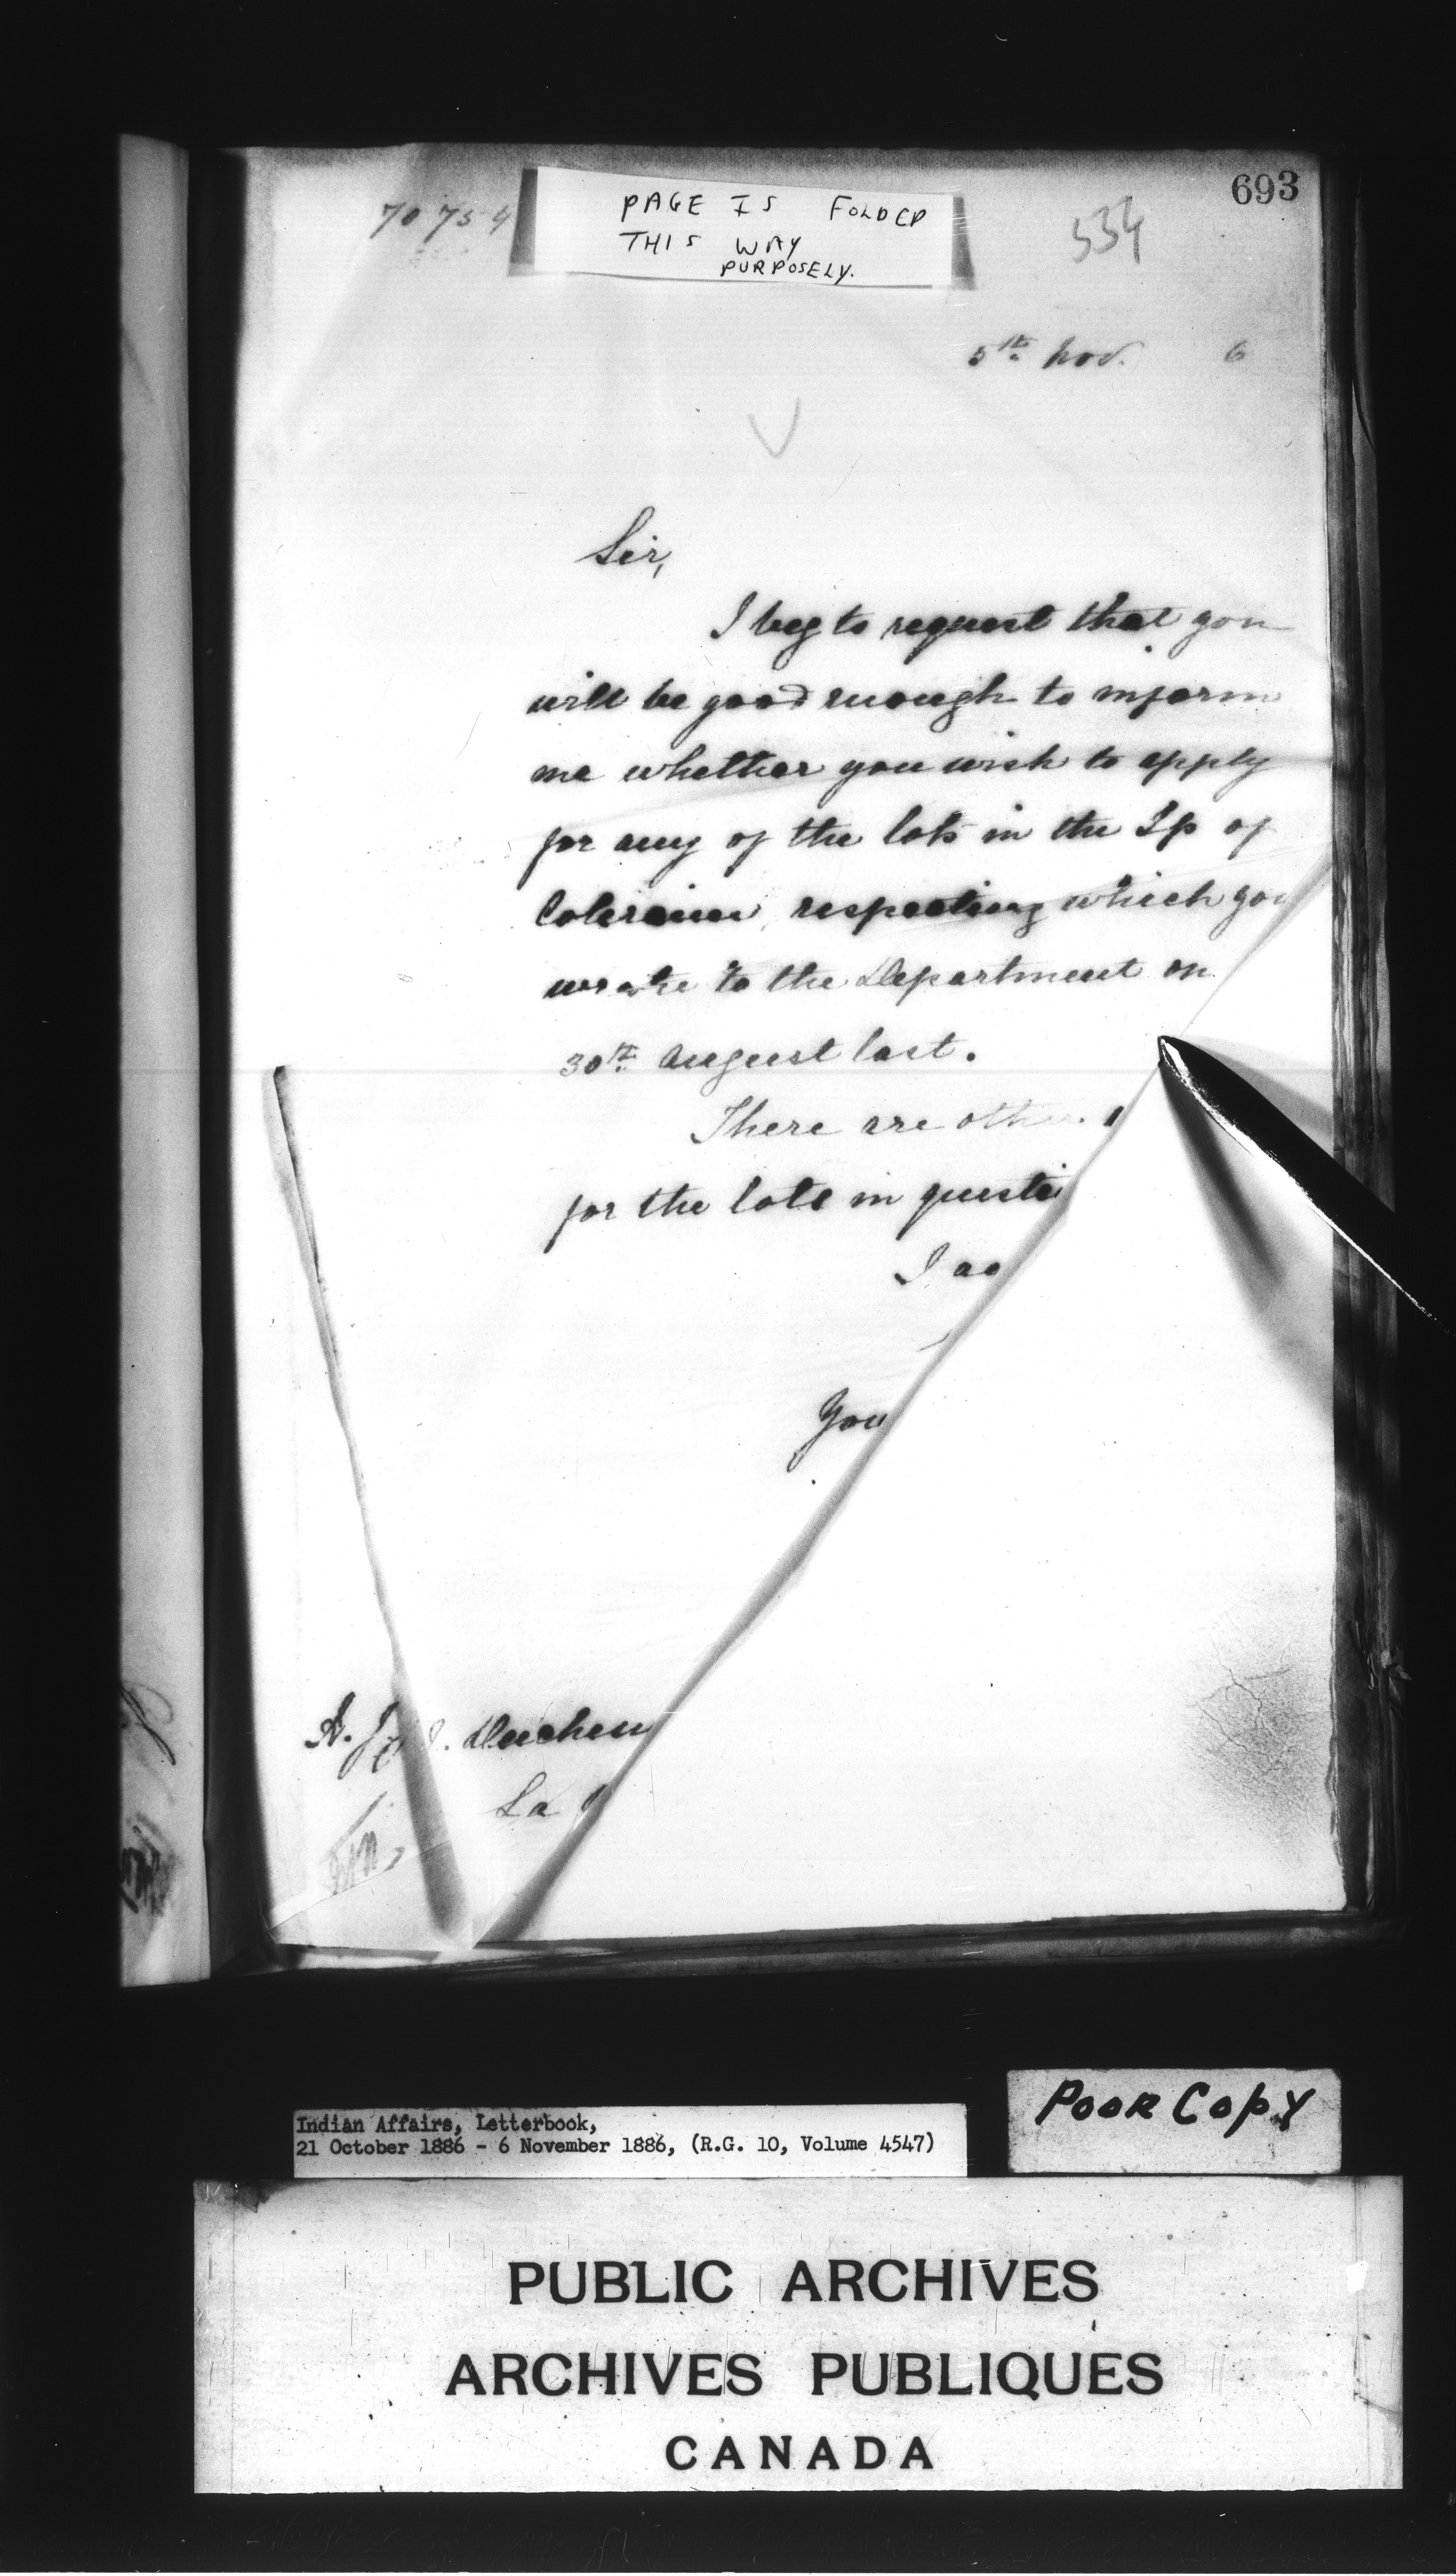 693
70754
PAGE IS FOLDED
THIS WAY
PURPOSELY.
534
5th Nov. 6
Sir,
I beg to request that you
will be good enough to inform
me whether you wish to apply
for any of the lots in the Tp of
Coleraine, respecting which you
wrote to the Department on
30th August last.
There are other
for the lots in questi
I a
You
A. Duchesn
La
Indian Affairs, Letterbook,
21 October 1886 - 6 November 1886, (R.G. 10, Volume 4547)
POOR COPY
PUBLIC ARCHIVES
ARCHIVES PUBLIQUES
CANADA